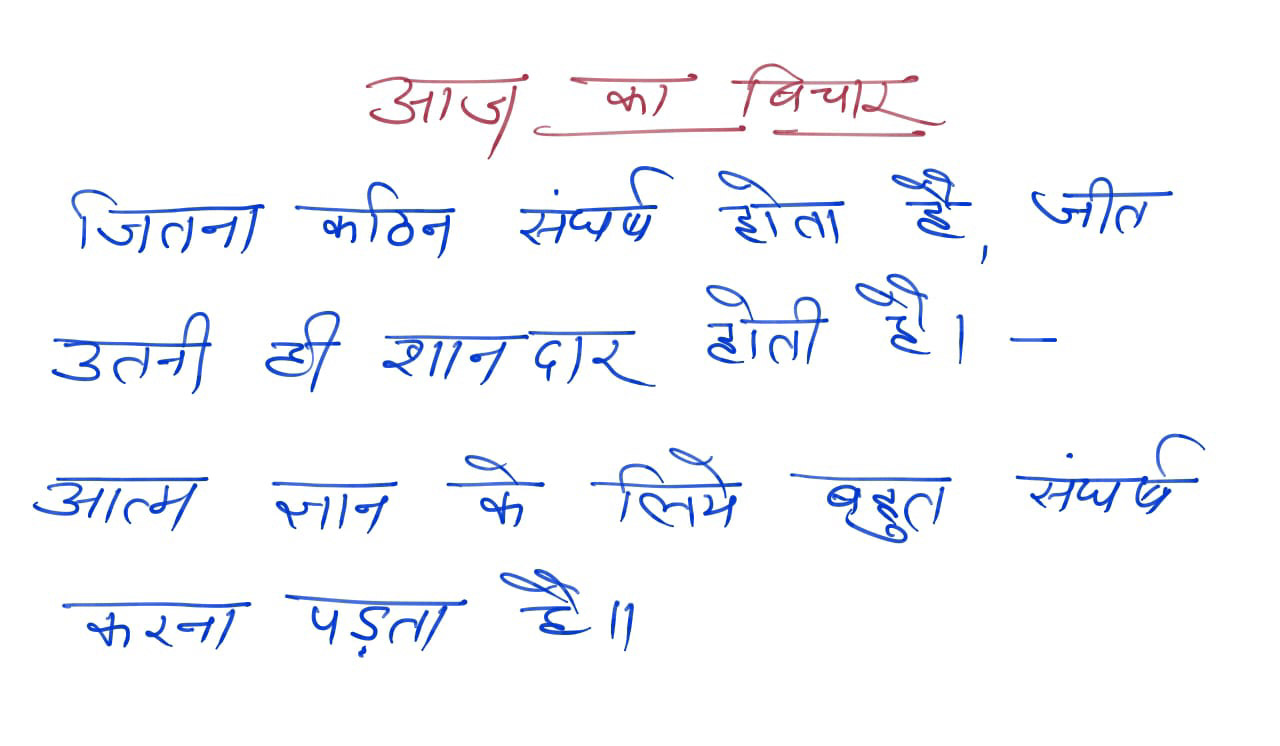 आज का बिचार
जितना कठिन संघर्ष होता है, जीत
उतनी ही शानदार होती है। –
आत्म ज्ञान के लिये बहुत संघर्ष
करना पड़ता है॥